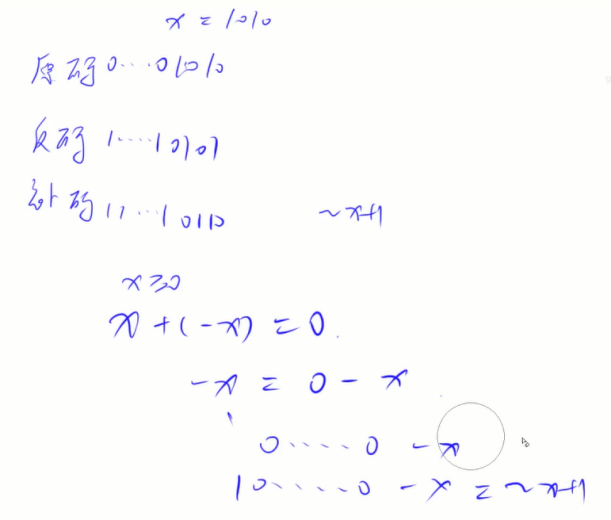 x = 1010
原码 0····01010
反码 1····10101
补码 11···10110 ~x+1
x≥0
x+(-x) = 0.
-x = 0 - x
0·····0 - x
10·····0 - x = ~x+1